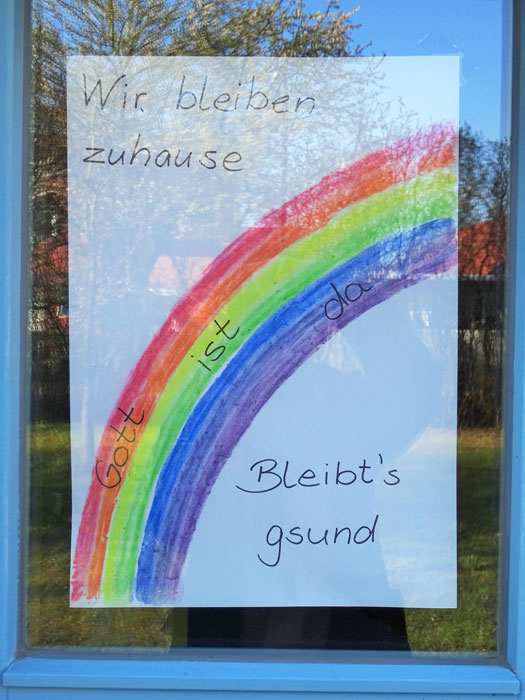 Wir bleiben
zuhause
Gott ist da
Bleibt's
gsund